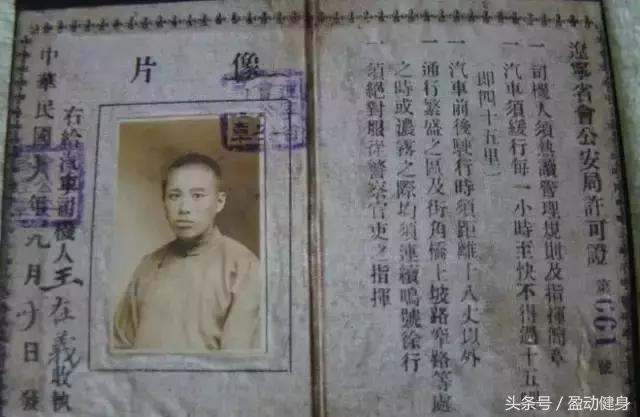 遼寧省會公安局許可證 第 661 號
一 司機人須熟讀管理規則及指揮簡章
一 汽車須緩行每一小時至快不得過十五
即四十五里
一 汽車前後駛行時須距離十八丈以外
一 通行繁盛之區及街角橋上坡路窄路等處
之時或濃霧之際均須連續鳴號徐行
一 須絕對服從警察官吏之指揮
像片
右給汽車司機人王在義收執
中華民國 年九月 日發
头条号 / 盈动健身